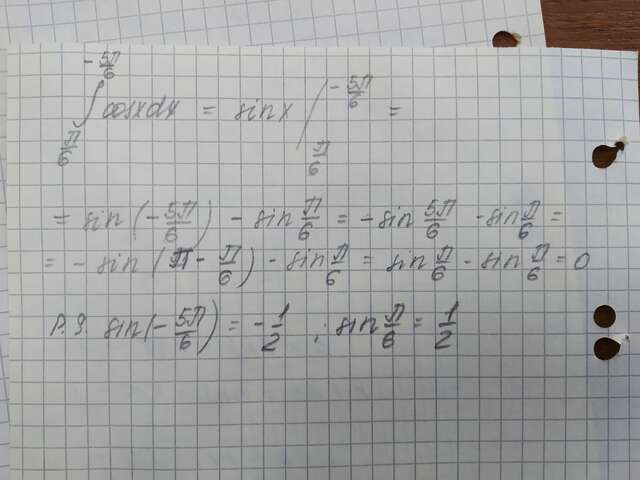 ∫_{π/6}^{-5π/6} cosxdx = sinx /_{π/6}^{-5π/6} =
= sin(-5π/6) - sin π/6 = -sin 5π/6 - sin π/6 =
= - sin (π - π/6) - sin π/6 = sin π/6 - sin π/6 = 0
P.S. sin(-5π/6) = -1/2 ; sin π/6 = 1/2